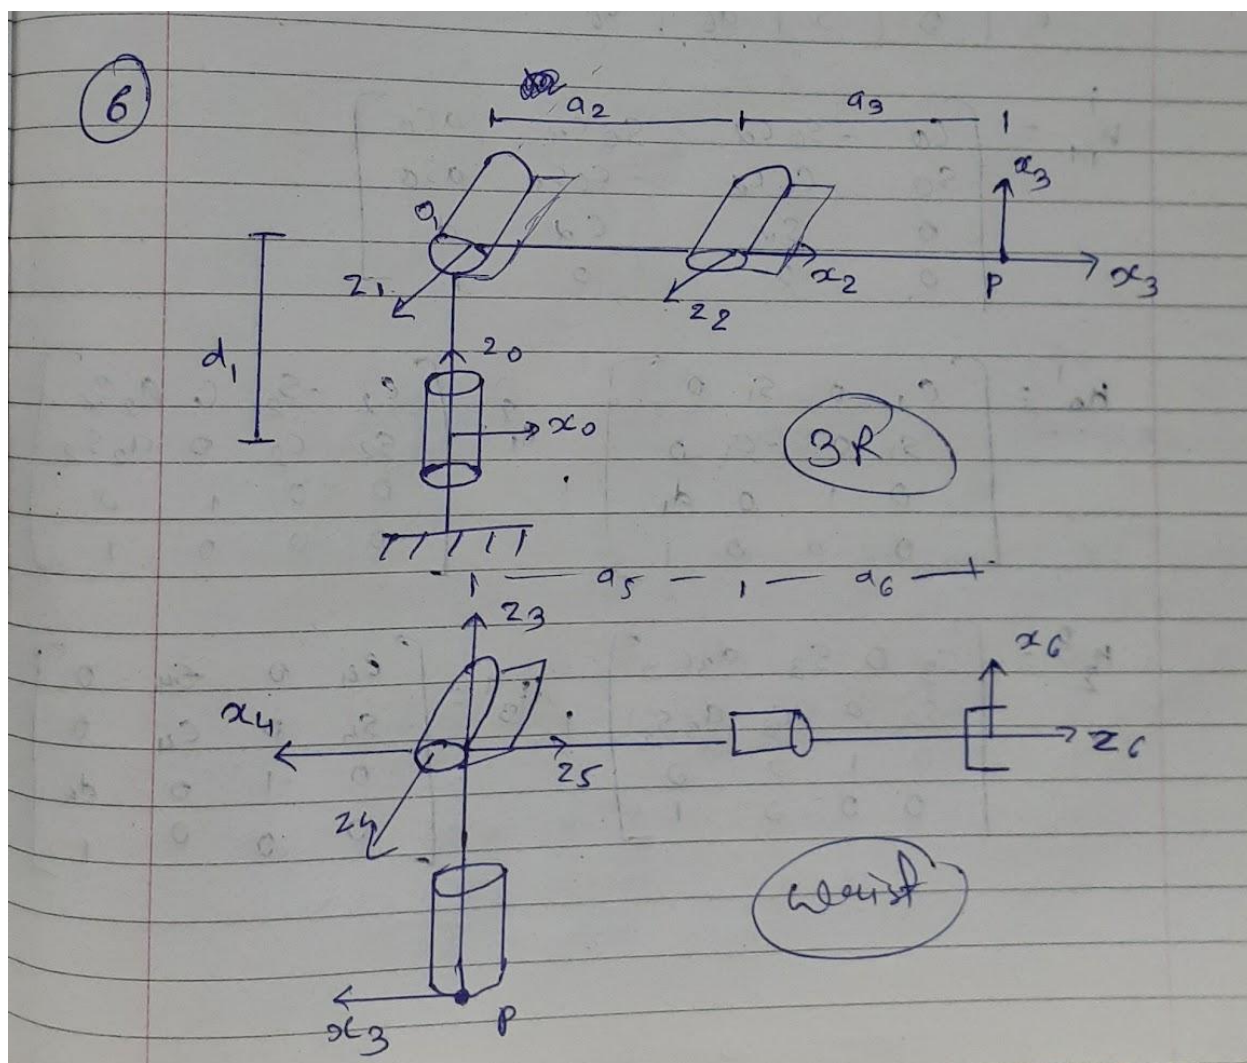 6
a2 a3
x3
O1
z1 x2 P x3
z2
d1
z0
x0
3R
a5 a6
z3
x6
x4
z5 z6
z4
wrist
x3 P